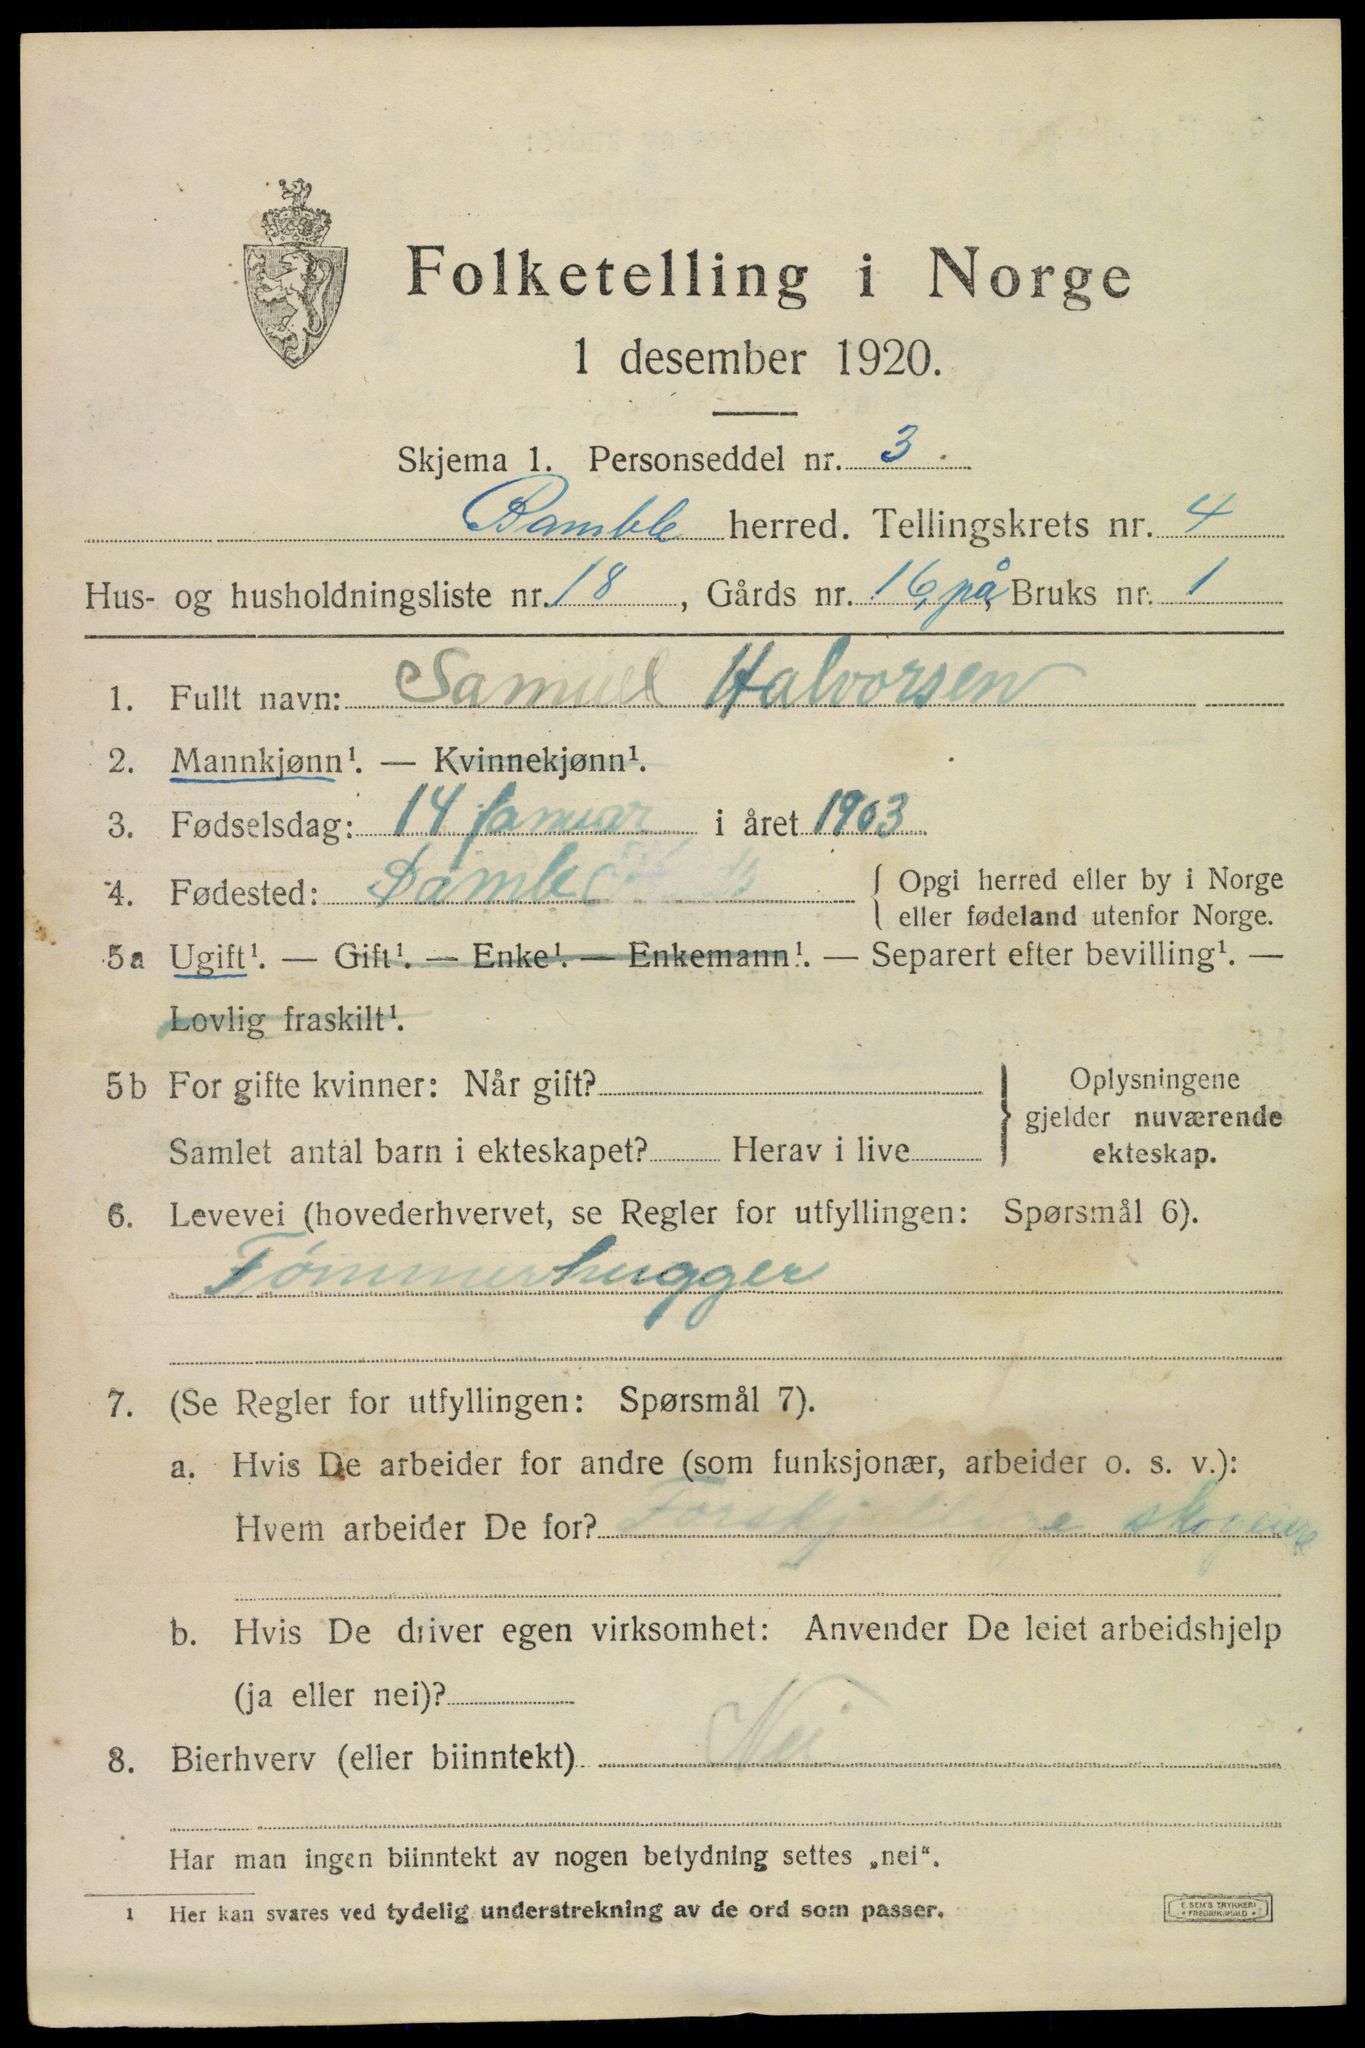 Folketelling i Norge
1 desember 1920.
Skjema 1. Personseddel nr. 3.
Bamble herred. Tellingskrets nr. 4
Hus- og husholdningsliste nr. 18, Gårds nr. 16, på, Bruks nr. 1
1. Fullt navn: Samuel Halvorsen
2. Mannkjønn¹. — Kvinnekjønn¹.
3. Fødselsdag: 14 januar i året 1903
4. Fødested: Bamble { Opgi herred eller by i Norge
eller fødeland utenfor Norge.
5a Ugift¹. — Gift¹. — Enke¹. — Enkemann¹. — Separert efter bevilling¹. —
Lovlig fraskilt¹.
5b For gifte kvinner: Når gift?
Samlet antal barn i ekteskapet? Herav i live
} Oplysningene
gjelder nuværende
ekteskap.
6. Levevei (hovederhvervet, se Regler for utfyllingen: Spørsmål 6).
Tømmerhugger
7. (Se Regler for utfyllingen: Spørsmål 7).
a. Hvis De arbeider for andre (som funksjonær, arbeider o. s. v.):
Hvem arbeider De for? Forskjellige skogeiere
b. Hvis De driver egen virksomhet: Anvender De leiet arbeidshjelp
(ja eller nei)?
8. Bierhverv (eller biinntekt) Nei
Har man ingen biinntekt av nogen betydning settes „nei“.
¹ Her kan svares ved tydelig understrekning av de ord som passer.
E. SEM'S TRYKKERI
FREDRIKSHALD